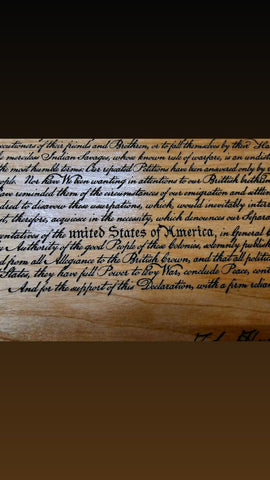 ecutioners of their friends and Brethren, or to fall themselves by their Ha
merciless Indian Savages, whose known rule of warfare, is an undist
the most humble terms: Our repeated Petitions have been answered only by r
people. Nor have We been wanting in attentions to our Brittish brethren
ave reminded them of the circumstances of our emigration and settle
dred to disavow these usurpations, which, would inevitably interr
st, therefore, acquiesce in the necessity, which denounces our Separa
entatives of the united States of America, in General C
y Authority of the good People of these Colonies, solemnly publish
d from all Allegiance to the British Crown, and that all politica
States, they have full Power to levy War, conclude Peace, cont
And for the support of this Declaration, with a firm relian